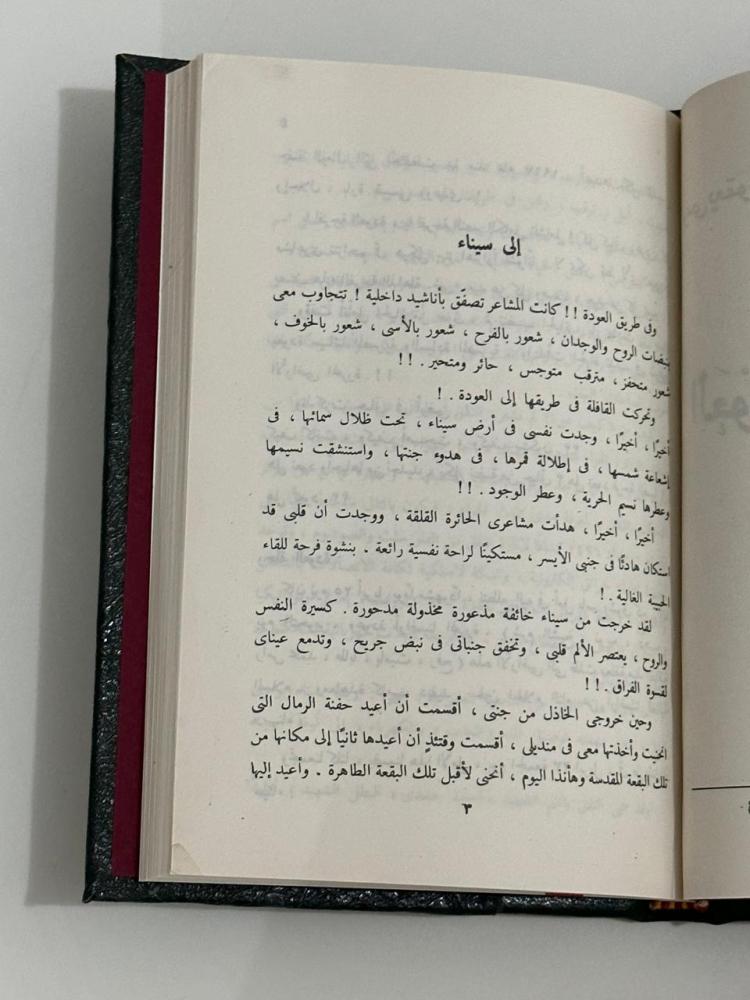 إلى سيناء
وفى طريق العودة !! كانت المشاعر تصفّق بأناشيد داخلية ! تتجاوب معى
بنبضات الروح والوجدان ، شعور بالفرح ، شعور بالأسى ، شعور بالخوف ،
شعور متحفز ، مترقب متوجس ، حائر ومتحير . !!
وتحركت القافلة فى طريقها إلى العودة . !
أخيرًا ، أخيرًا ، وجدت نفسى فى أرض سيناء ، تحت ظلال سمائها ، فى
إشعاعة شمسها ، فى إطلالة قمرها ، فى هدوء جنتها ، واستنشقت نسيمها
وعطرها نسيم الحرية ، وعطر الوجود . !!
أخيرًا ، أخيرًا ، هدأت مشاعرى الحائرة القلقة ، ووجدت أن قلبى قد
استكان هادئًا فى جنبى الأيسر ، مستكينًا لراحة نفسية رائعة . بنشوة فرحة للقاء
الحبيبة الغالية . !
لقد خرجت من سيناء خائفة مذعورة مخذولة مدحورة . كسيرة النفس
والروح ، يعتصر الألم قلبى ، وتخفق جنباتى فى نبض جريح ، وتدمع عيناى
لقسوة الفراق . !!
وحين خروجى الخاذل من جنتى ، أقسمت أن أعيد حفنة الرمال التى
انحنيت وأخذتها معى فى منديلى ، أقسمت وقتئذٍ أن أعيدها ثانيًا إلى مكانها من
تلك البقعة المقدسة وهأنذا اليوم ، أنحنى لأقبل تلك البقعة الطاهرة . وأعيد إليها
٣